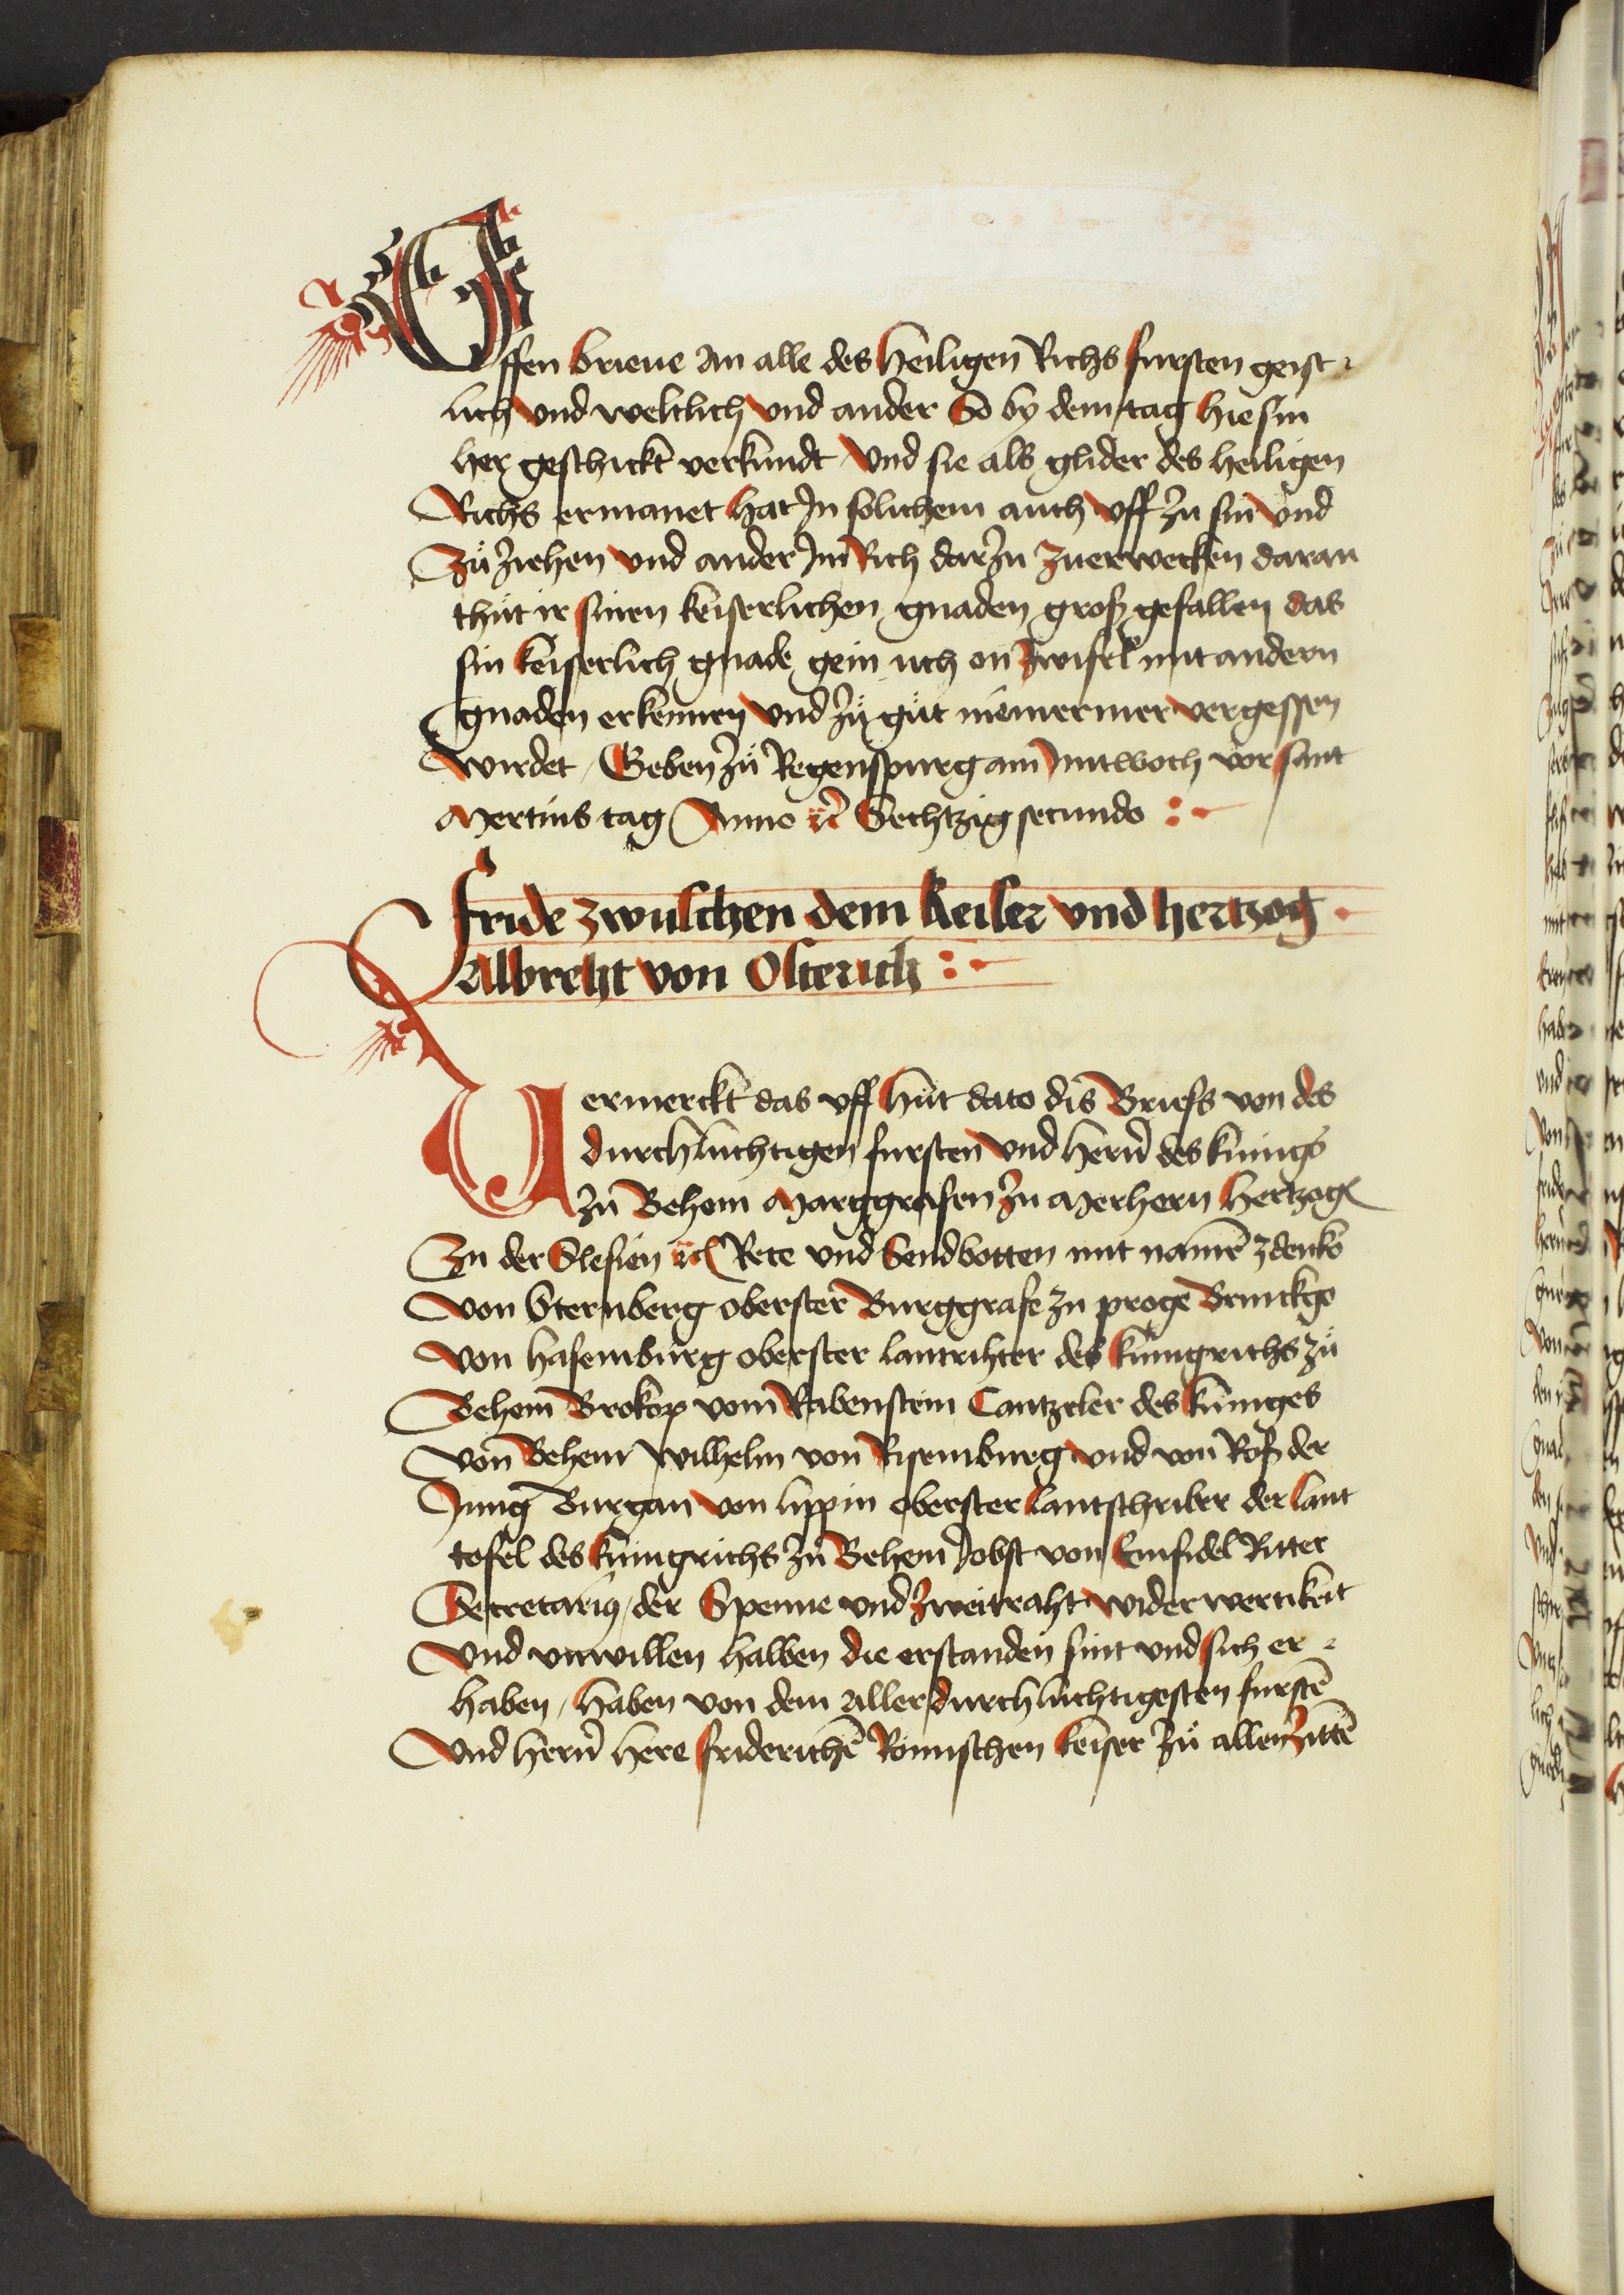 Offen brieue An alle des heiligen Richs fursten geist-
lich vnd weltlich vnd ander So by dem tag hie sin
her geschickt verkundt vnd sie als glider des heiligen
Richs ermanet hat In solichem auch vff zu sin vnd
Zu ziehen vnd ander Im Rich darzu zuerwecken daran
thut ir sinen keiserlichen gnaden groß gefallen das
sin keiserlich gnade gein uch on zwifel mit andern
gnaden erkennen vnd zu gut niemermer vergessen
wirdet / Geben zu Regenspurg am mitwoch vor sant
Mertins tag Anno rc Sechtzig secundo :-
fride zwuschen dem keiser vnd hertzog
Albreht von Osterich :-
Uermerckt das vff hut dato dis Briefs von des
durchluchtigen fursten vnd hern des kunigs
zu Behem Marggrafen zu Merhern hertzog
Zu der Slesien rc Rete vnd Sendbotten mit name zdenko
von Sternberg oberster Burggrafe zu proge Brinckgo
von hasemburg oberster lantrihter des kunigrichs zu
Behem Brokop vom Rabenstein Cantzeler des kuniges
von Behem Wilhelm von Risemburg vnd von Roß der
Jung Burgan von lippin oberster lantschriber der lant
tofel des kunigrichs zu Behem Jobst von Einsidel Ritter
Secretarius / der Spenne vnd zweitraht widerwertikeit
vnd vnwillen halben die erstanden sint vnd sich er-
haben / haben von dem aller durchluchtigesten furste
vnd hern here frideriche Romischen keiser zu allen zitte